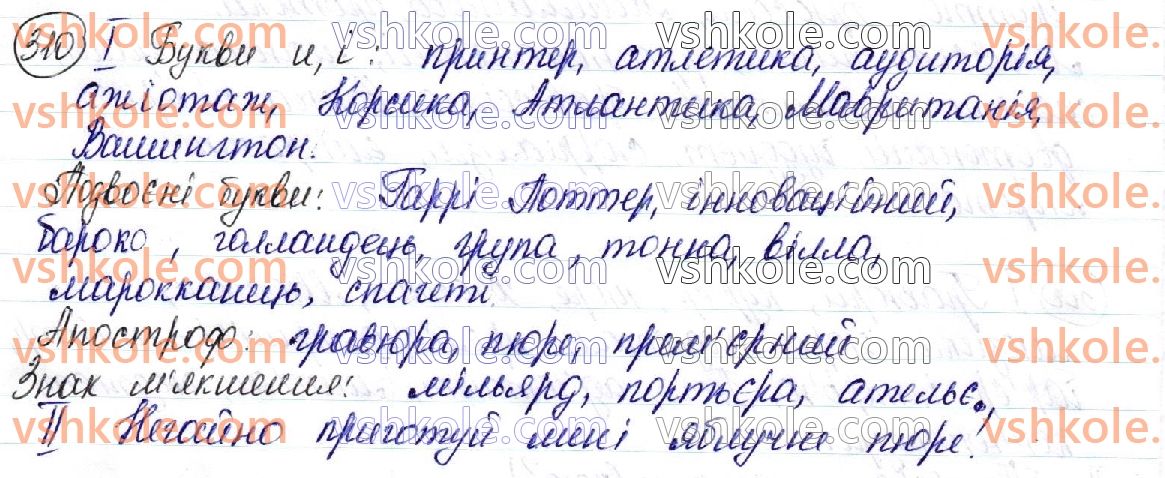 310 I Букви и, і: принтер, атлетика, аудиторія,
ажіотаж, Корсика, Атлантика, Мавританія,
Вашингтон.
Подвоєні букви: Гаррі Поттер, інноваційний,
бароко, голландець, група, тонна, вілла,
марокканець, спагеті.
Апостроф: гравюра, пюре, прем'єрний
Знак м'якшення: мільярд, портьєра, ательє.
II Негайно приготуй мені яблучне пюре!
vshkole.com